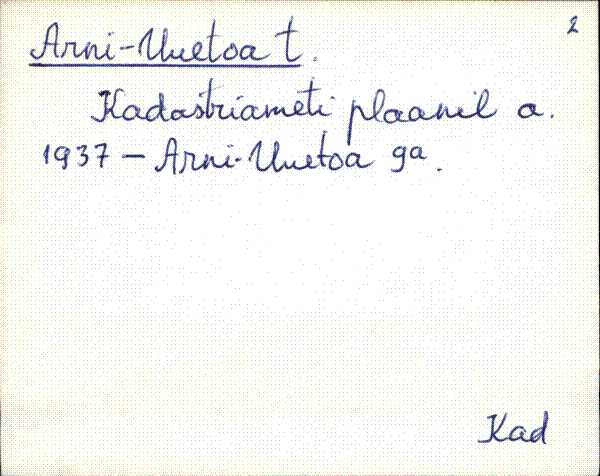 2
Arni-Uuetoa t.
Kadastriameti plaanil a.
1937 - Arni-Uuetoa 9a.
Kad